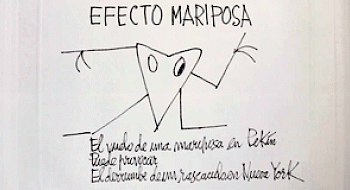 EFECTO MARIPOSA
El vuelo de una mariposa en Pekín
Puede provocar
El derrumbe de un rascacielos en Nueva York